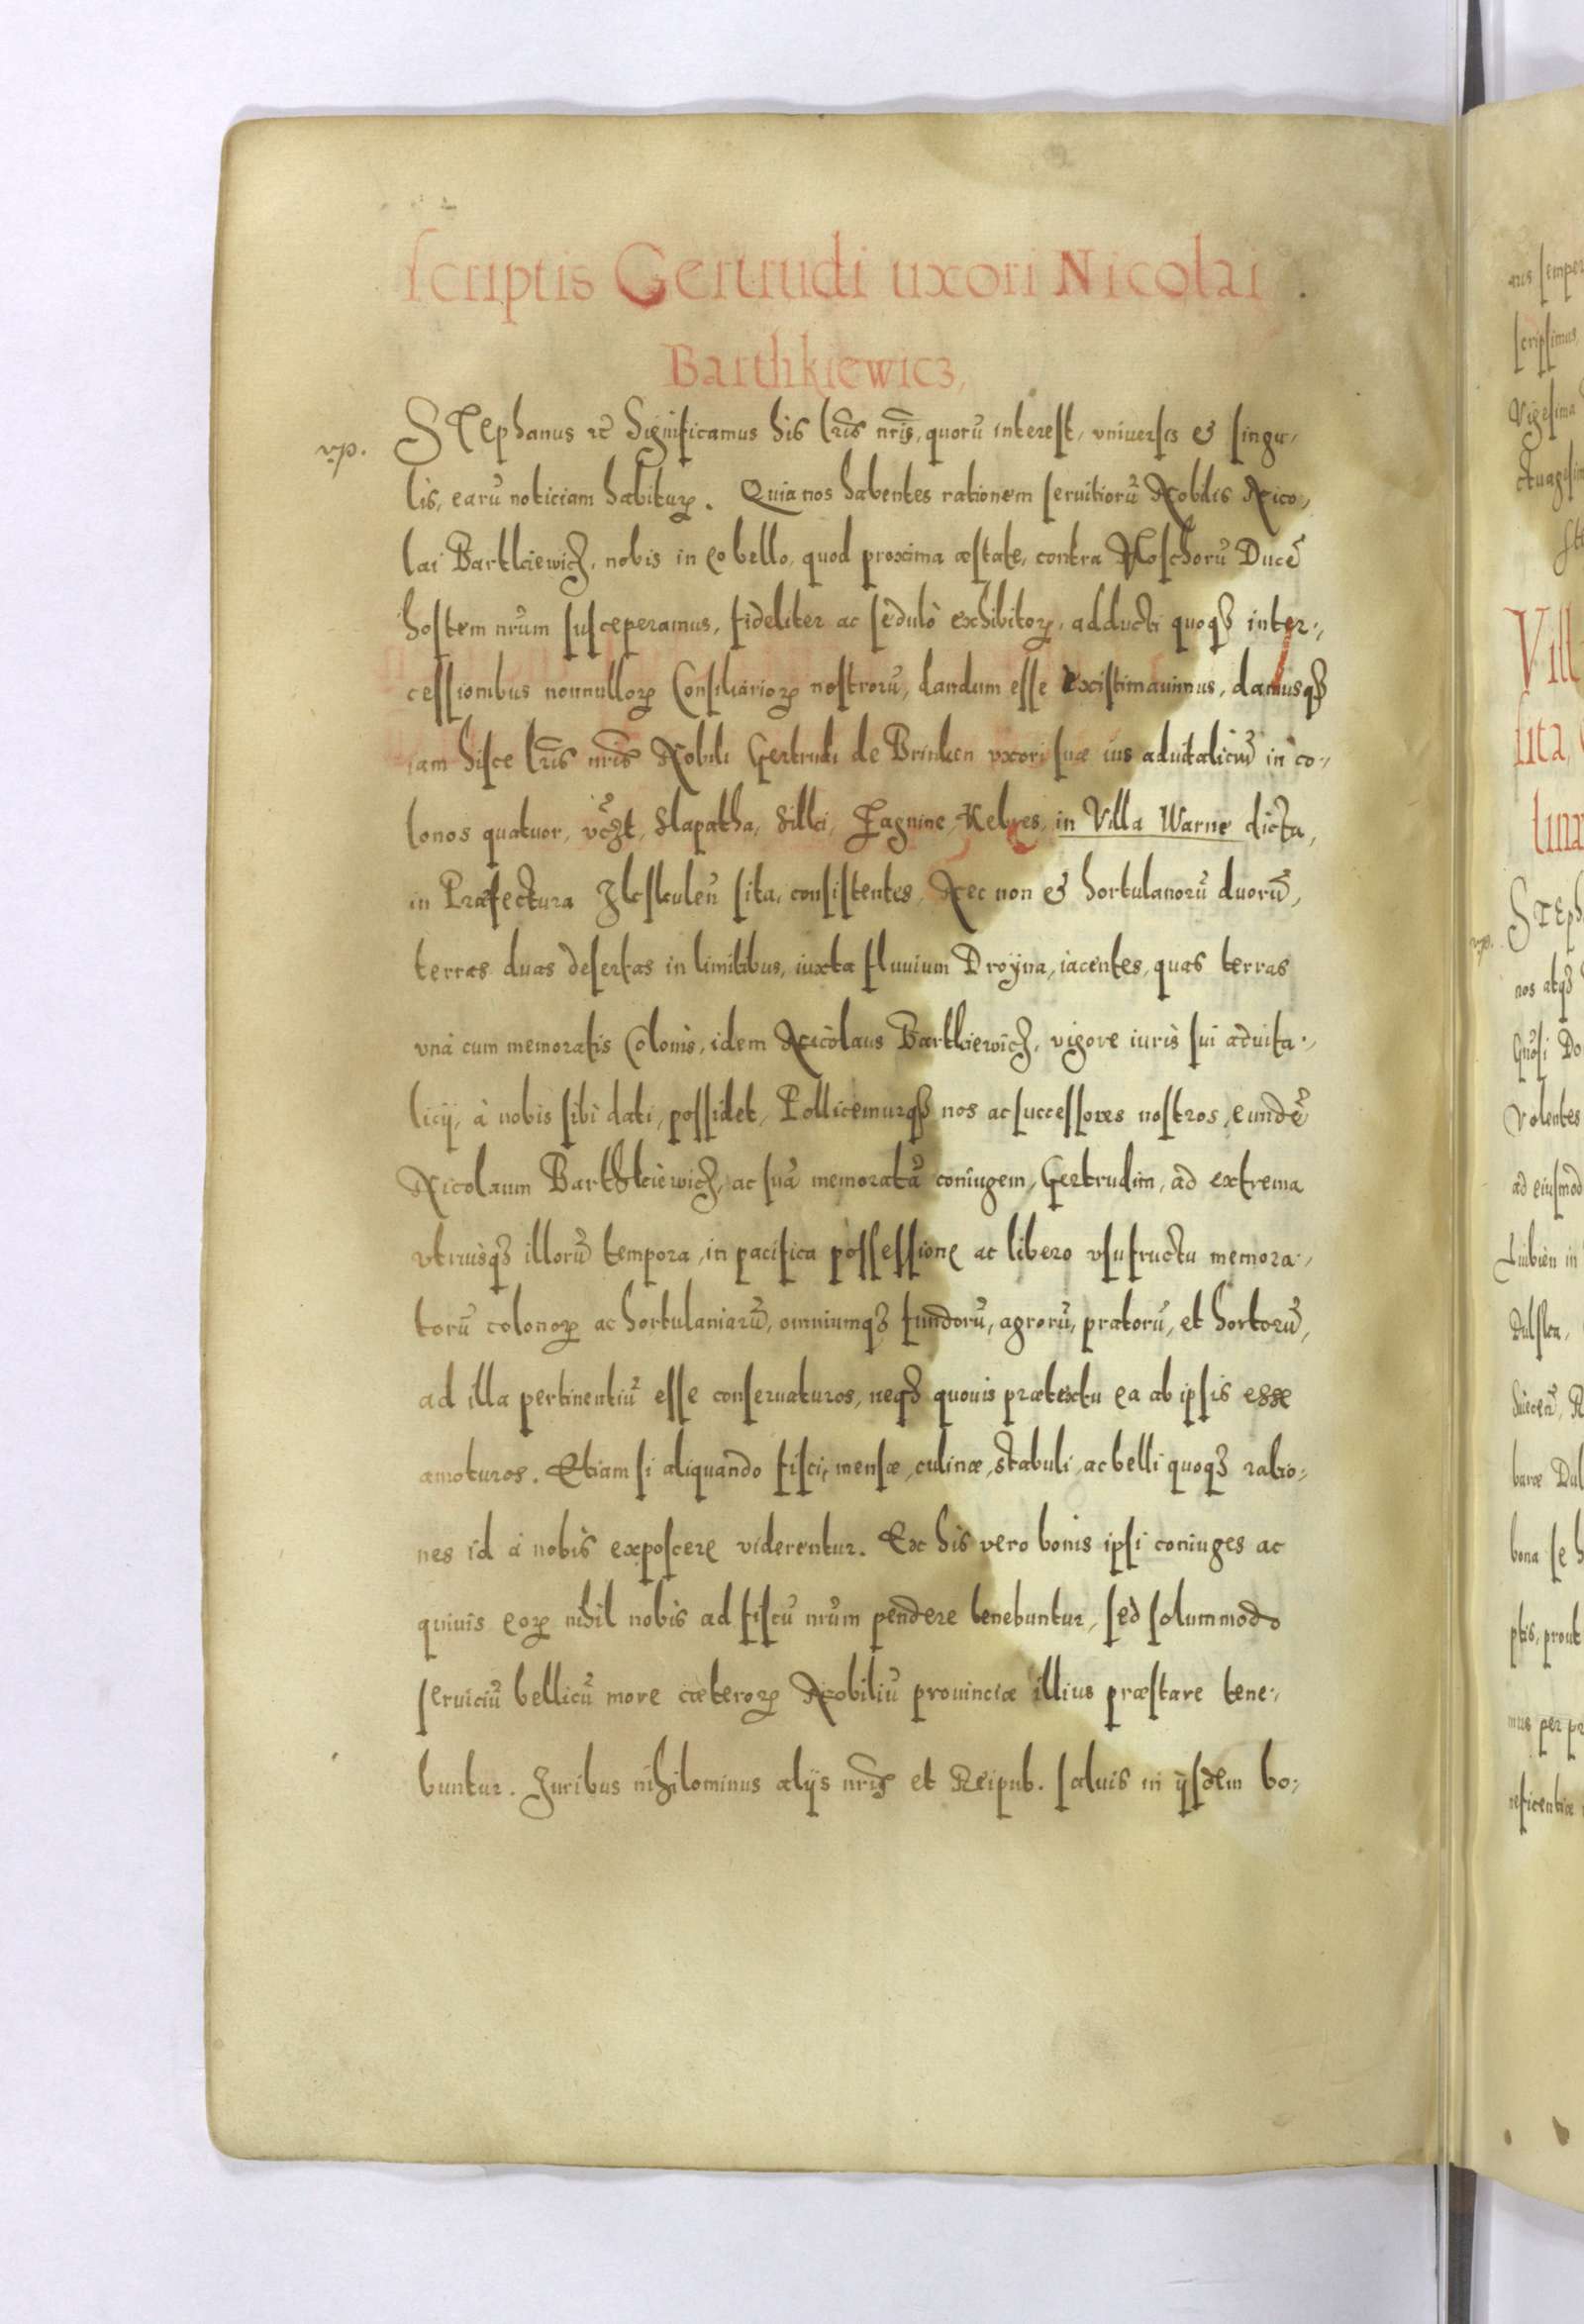 scriptis Gertrudi uxori Nicolai
Barthkiewicz,
vp.
STEphanus etc Significamus his lr̃is nr̃is, quorũ interest, vniuersis & singu,
lis, earũ noticiam habiturꝝ. Quia nos habentes rationem seruitiorũ Nobilis Nico,
lai Bartkiewicz, nobis in eo bello, quod proxima æstate, contra Moschorũ Ducẽ
hostem nr̃um susceperamus, fideliter ac sedulò exhibitorꝝ, adducti quoqꝫ inter,
cessionibus nonnullorꝝ Consiliariorꝝ nostrorũ, dandum esse existimauimus, damusqꝫ
iam hisce lr̃is nr̃is Nobili Gertrudi de Brinken vxori suæ ius aduitaliciũ in co,
lonos quatuor, vcz̃t, Slapatha, Silki, Pagnine, Kebres, in Villa Warne dicta,
in Præfectura sita, consistentes, Nec non & hortulanorũ duorũ,
terras duas desertas in limitibus, iuxta fluuium Droÿna, iacentes, quas terras
vnà cum memoratis Colonis, idem Nicolaus Bartkiewicz, vigore iuris sui aduita,
licij, à nobis sibi dati, possidet, Pollicemurqꝫ nos ac successores nostros, eundẽ
Nicolaum Barthkiewicz, ac suã memoratã coniugem, Gertrudim, ad extrema
vtriusqꝫ illorũ tempora, in pacifica possessione ac libero vsufructu memora,
torũ colonorꝝ ac hortulaniarũ, omniumqꝫ fundorũ, agrorũ, pratorũ, et hortorũ,
ad illa pertinentiũ esse conseruaturos, neqꝫ quouis prætextu ea ab ipsis esse
amoturos. Etiam si aliquando fisci, mensæ, culinæ, stabuli, ac belli quoqꝫ ratio,
nes id à nobis exposcere viderentur. Ex his vero bonis ipsi coniuges ac
quiuis eorꝝ nihil nobis ad fiscũ nr̃um pendere tenebuntur, sed solummodo
seruiciũ bellicũ more cæterorꝝ Nobiliũ prouinciæ illius præstare tene,
buntur. Juribus nihilominus alijs nr̃is et Reipub. saluis in ijsdem bo,